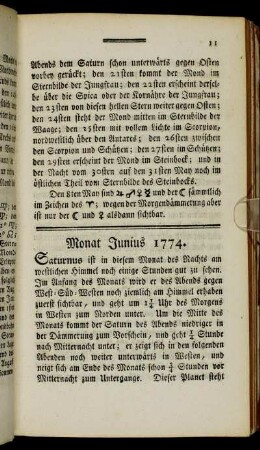 11
Abends dem Saturn schon unterwärts gegen Osten
vorbey gerückt; den 21sten kommt der Mond im
Sternbilde der Jungfrau; den 22sten erscheint derselbe
über die Spica oder der Kornähre der Jungfrau;
den 23sten von diesen hellen Stern weiter gegen Osten;
den 24sten steht der Mond mitten im Sternbilde der
Waage; den 25sten mit vollem Lichte im Scorpion,
nordwestlich über den Antares; den 26sten, zwischen
den Scorpion und Schützen; den 27sten im Schützen;
den 29sten erscheint der Mond im Steinbock; und in
der Nacht vom 30sten auf den 31sten May noch im
östlichen Theil vom Sternbilde des Steinbocks.
Den 8ten May sind ♃ ♂ ☿ und ☾ sämmtlich
im Zeichen des ♈; wegen der Morgendämmerung aber
ist nur der ☾ und ♀ alsdann sichtbar.
Monat Junius 1774.
Saturnus ist in diesem Monat des Nachts am
westlichen Himmel noch einige Stunden gut zu sehen.
Im Anfang des Monats wird er des Abends gegen
West-Süd-Westen noch ziemlich am Himmel erhaben
zuerst sichtbar, und geht um Uhr des Morgens
in Westen zum Norden unter. Um die Mitte des
Monats kommt der Saturn des Abends niedriger in
der Dämmerung zum Vorschein, und geht ½ Stunde
nach Mitternacht unter; er zeigt sich in den folgenden
Abenden noch weiter unterwärts in Westen, und
neigt sich am Ende des Monats schon ¾ Stunden vor
Mitternacht zum Untergange. Dieser Planet steht